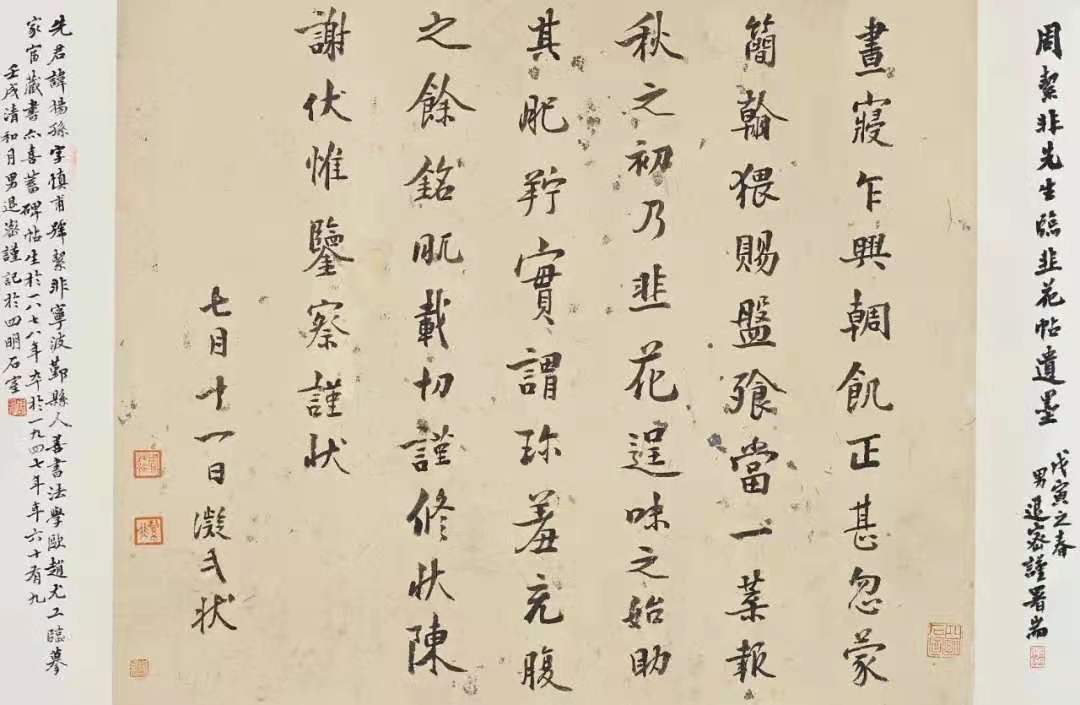 周絜非先生臨韭花帖遺墨
戊寅之春
男退密謹署耑
晝寢乍興輖飢正甚忽蒙
簡翰猥賜盤飧當一葉報
秋之初乃韭花逞味之始助
其肥羜實謂珍羞充腹
之餘銘肌載切謹修狀陳
謝伏惟鑒察謹狀
七月十一日凝式狀
先君諱揚孫字慎甫號絜非寧波鄞縣人善書法學歐趙尤工臨摹
家富藏書亦喜蓄碑帖生於一八七八年卒於一九四七年年六十有九
壬戌清和月男退密謹記於四明石室